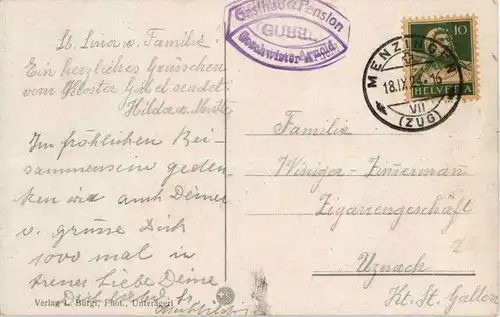 Gasthaus & Pension
GUBEL
Geschwister Arnold
L. Lina u. Familie!
Ein herzliches Grüsschen
vom Kloster Gubel sendet
Hilda u. 
Im fröhlichen Bei-
sammensein geden-
ken wir auch Deiner
u. grüsse Dich
1000 mal in
treuer Liebe Deine
Dich
Verlag L. Bürgi, Phot., Unterägeri
10
HELVETIA
MENZINGEN
18.IX.
VII
(ZUG)
Familie
Winiger-Zimmermann
Zigarrengeschäft
Uznach
Kt. St. Gallen